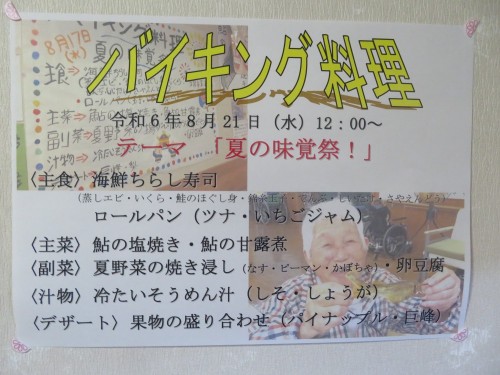 バイキング料理
令和6年8月21日（水）12：00～
テーマ 「夏の味覚祭！」
〈主食〉海鮮ちらし寿司
（蒸しエビ・いくら・鮭のほぐし身・錦糸玉子・でんぶ・しいたけ・さやえんどう）
ロールパン（ツナ・いちごジャム）
〈主菜〉鮎の塩焼き・鮎の甘露煮
〈副菜〉夏野菜の焼き浸し（なす・ピーマン・かぼちゃ）・卵豆腐
〈汁物〉冷たいそうめん汁（しそ・しょうが）
〈デザート〉果物の盛り合わせ（パイナップル・巨峰）
8月17日
（水）
主食
・ロールパン
主菜
副菜
汁物